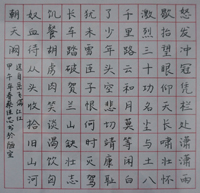 怒发冲冠凭栏处潇潇雨
歇抬望眼仰天长啸壮怀
激烈三十功名尘与土八
千里路云和月莫等闲白
了少年头空悲切靖康耻
犹未雪臣子恨何时灭驾
长车踏破贺兰山缺壮志
饥餐胡虏肉笑谈渴饮匈
奴血待从头收拾旧山河
朝天阙
选自岳飞满江红
甲午年春志书於陋室